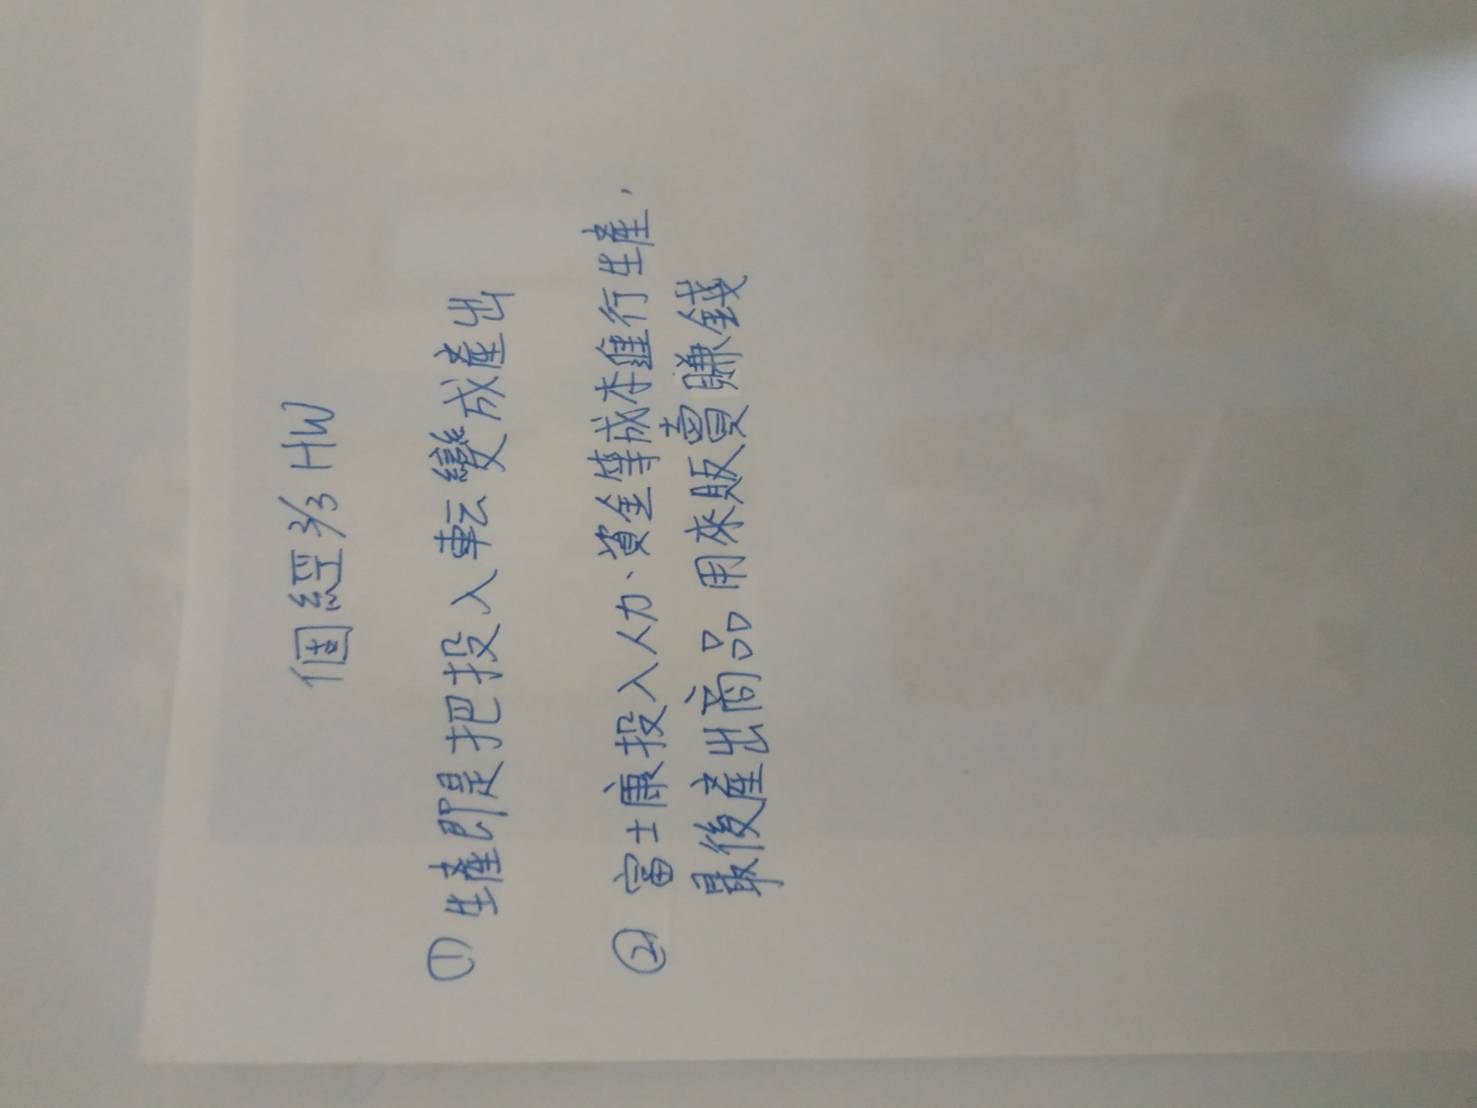 個經 3/3 HW
① 生產即是把投入転變成產出
② 富士康投入人力、資金等成本進行生產,
最後產出商品用來販賣賺錢